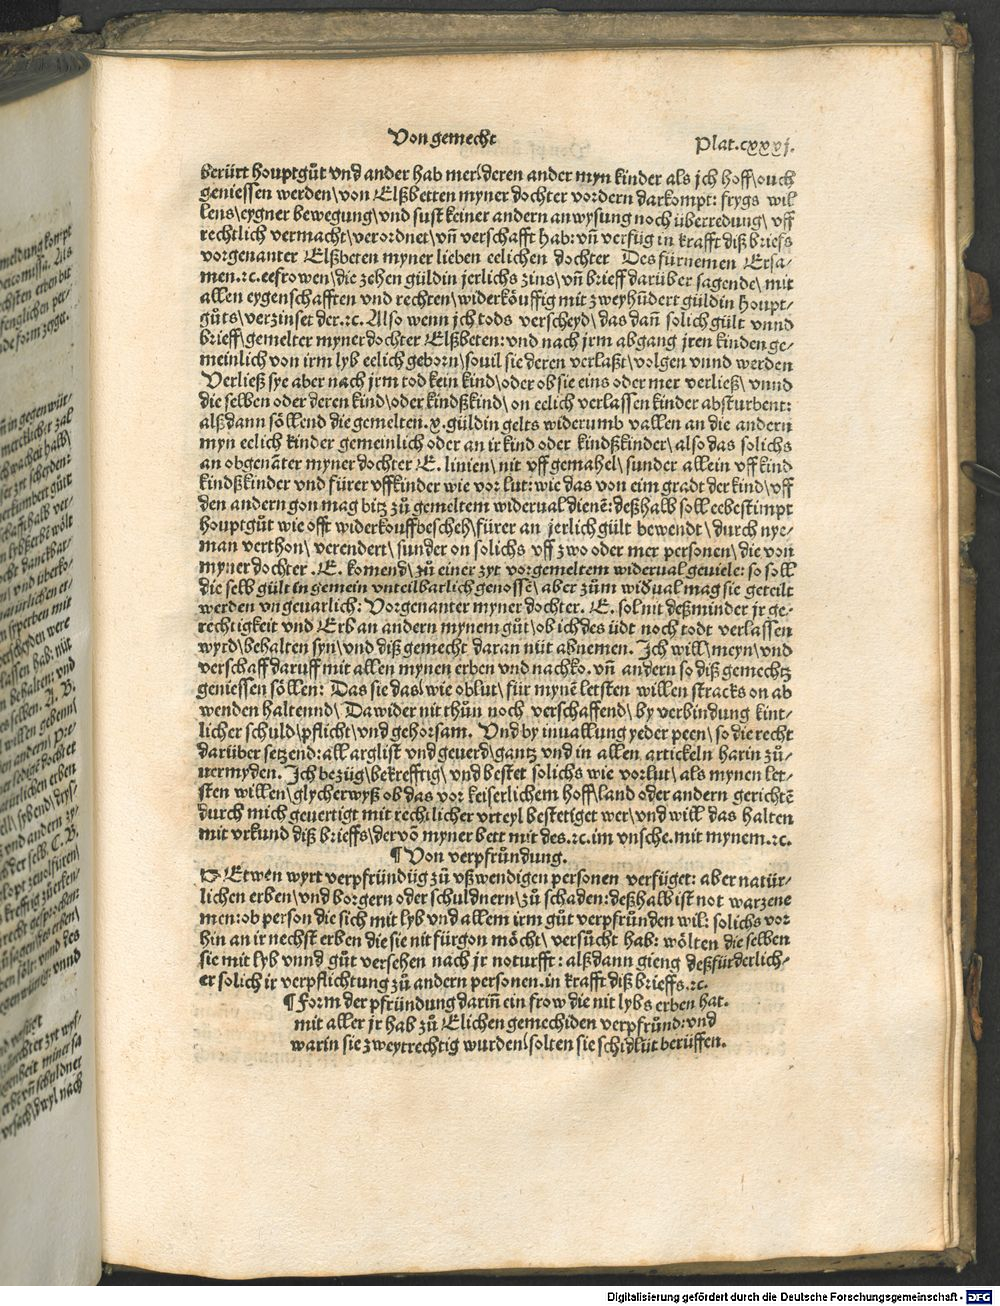 Von gemecht
Plat.cxxxj.
berürt houptgůt vnd ander hab mer\deren ander myn kinder als jch hoff\ouch
geniessen werden\von Elßbetten myner dochter vordern darkompt: frygs wil⸗
lens\eygner bewegung\vnd sust keiner andern anwysung noch überredung\ vff
rechtlich vermacht\verordnet\vñ verschafft hab: vñ verfüg in krafft diß briefs
vorgenanter Elßbeten myner lieben eelichen dochter Des fürnemen Ersa⸗
men.⁊c.eefrowen\die zehen güldin jerlichs zins\vñ brieff darüber sagende\ mit
allen eygenschafften vnd rechten\widerköuffig mit zweyhũdert güldin houpt⸗
gůts\verzinset der.⁊c. Also wenn jch tods verscheyd\das dañ solich gült vnnd
brieff\gemelter myner dochter Elßbeten: vnd nach jrm abgang jren kinden ge⸗
meinlich von irm lyb eelich geborn\souil sie deren verlaßt\volgen vnnd werden
Verließ sye aber nach jrm tod kein kind\oder ob sie eins oder mer verließ\ vnnd
die selben oder deren kind\oder kindßkind\ on eelich verlassen kinder absturbent:
alßdann söllend die gemelten.x.güldin gelts widerumb vallen an die andern
myn eelich kinder gemeinlich oder an ir kind oder kindßkinder\also das solichs
an obgenãter myner dochter E. linien\ nit vff gemahel\ sunder allein vff kind
kindßkinder vnd fürer vffkinder wie vor lut: wie das von eim gradt der kind\vff
den andern gon mag bitz zů gemeltem widerual dienẽ: deßhalb soll eebestimpt
houptgůt wie offt widerkouffbescheh\fürer an jerlich gült bewendt\durch nye⸗
man verthon\ verendert\ sunder on solichs vff zwo oder mer personen\die von
myner dochter .E. komend\ zů einer zyt vorgemeltem widerual geuiele: so soll
die selb gült in gemein vnteilbarlich genossẽ\ aber zům widual mag sie geteilt
werden vngeuarlich: Vorgenanter myner dochter. E. sol nit deßminder jr ge⸗
rechtigkeit vnd Erb an andern mynem gůt\ob ich des üdt noch todt verlassen
wyrd\behalten syn\vnd diß gemecht daran nüt abnemen. Ich will\meyn\vnd
verschaff daruff mit allen mynen erben vnd nachko. vñ andern so diß gemechtz
geniessen söllen: Das sie das\wie oblut\ für mynẽ letsten willen stracks on ab
wenden haltennd\ Da wider nit thůn noch verschaffend\ by verbindung kint⸗
licher schuld\pflicht\vnd gehorsam. Vnd by inuallung yeder peen\ so die recht
darüber setzend: all arglist vnd geuerd\gantz vnd in allen artickeln harin zů⸗
uermyden. Ich bezüg\bekrefftig\ vnd bestet solichs wie vorlut\ als mynen let⸗
sten willen\glycherwyß ob das vor keiserlichem hoff\land oder andern gerichtẽ
durch mich geuertigt mit rechtlicher vrteyl bestetiget wer\vnd will das halten
mit vrkund diß brieffs\der võ myner bett mit des.⁊c.im vnsche.mit mynem.⁊c.
¶ Von verpfründung.
Etwen wyrt verpfründũg zů vßwendigen personen verfüget: aber natür⸗
lichen erben\vnd borgern oder schuldnern\zů schaden: deßhalb ist not warzene
men: ob person die sich mit lyb vnd allem irm gůt verpfründen wil: solichs vor
hin an ir nechst erben die sie nit fürgon möcht\ versůcht hab: wölten die selben
sie mit lyb vnnd gůt versehen nach jr noturfft: alßdann gieng deßfürderlich⸗
er solich ir verpflichtung zů andern personen.in krafft diß brieffs.⁊c.
¶ Form der pfründung dariñ ein frow die nit lybs erben hat.
mit aller jr hab zů Elichen gemechiden verpfründ: vnd
warin sie zweytrechtig wurden\solten sie schidlüt berüffen.
Digitalisierung gefördert durch die Deutsche Forschungsgemeinschaft - DFG